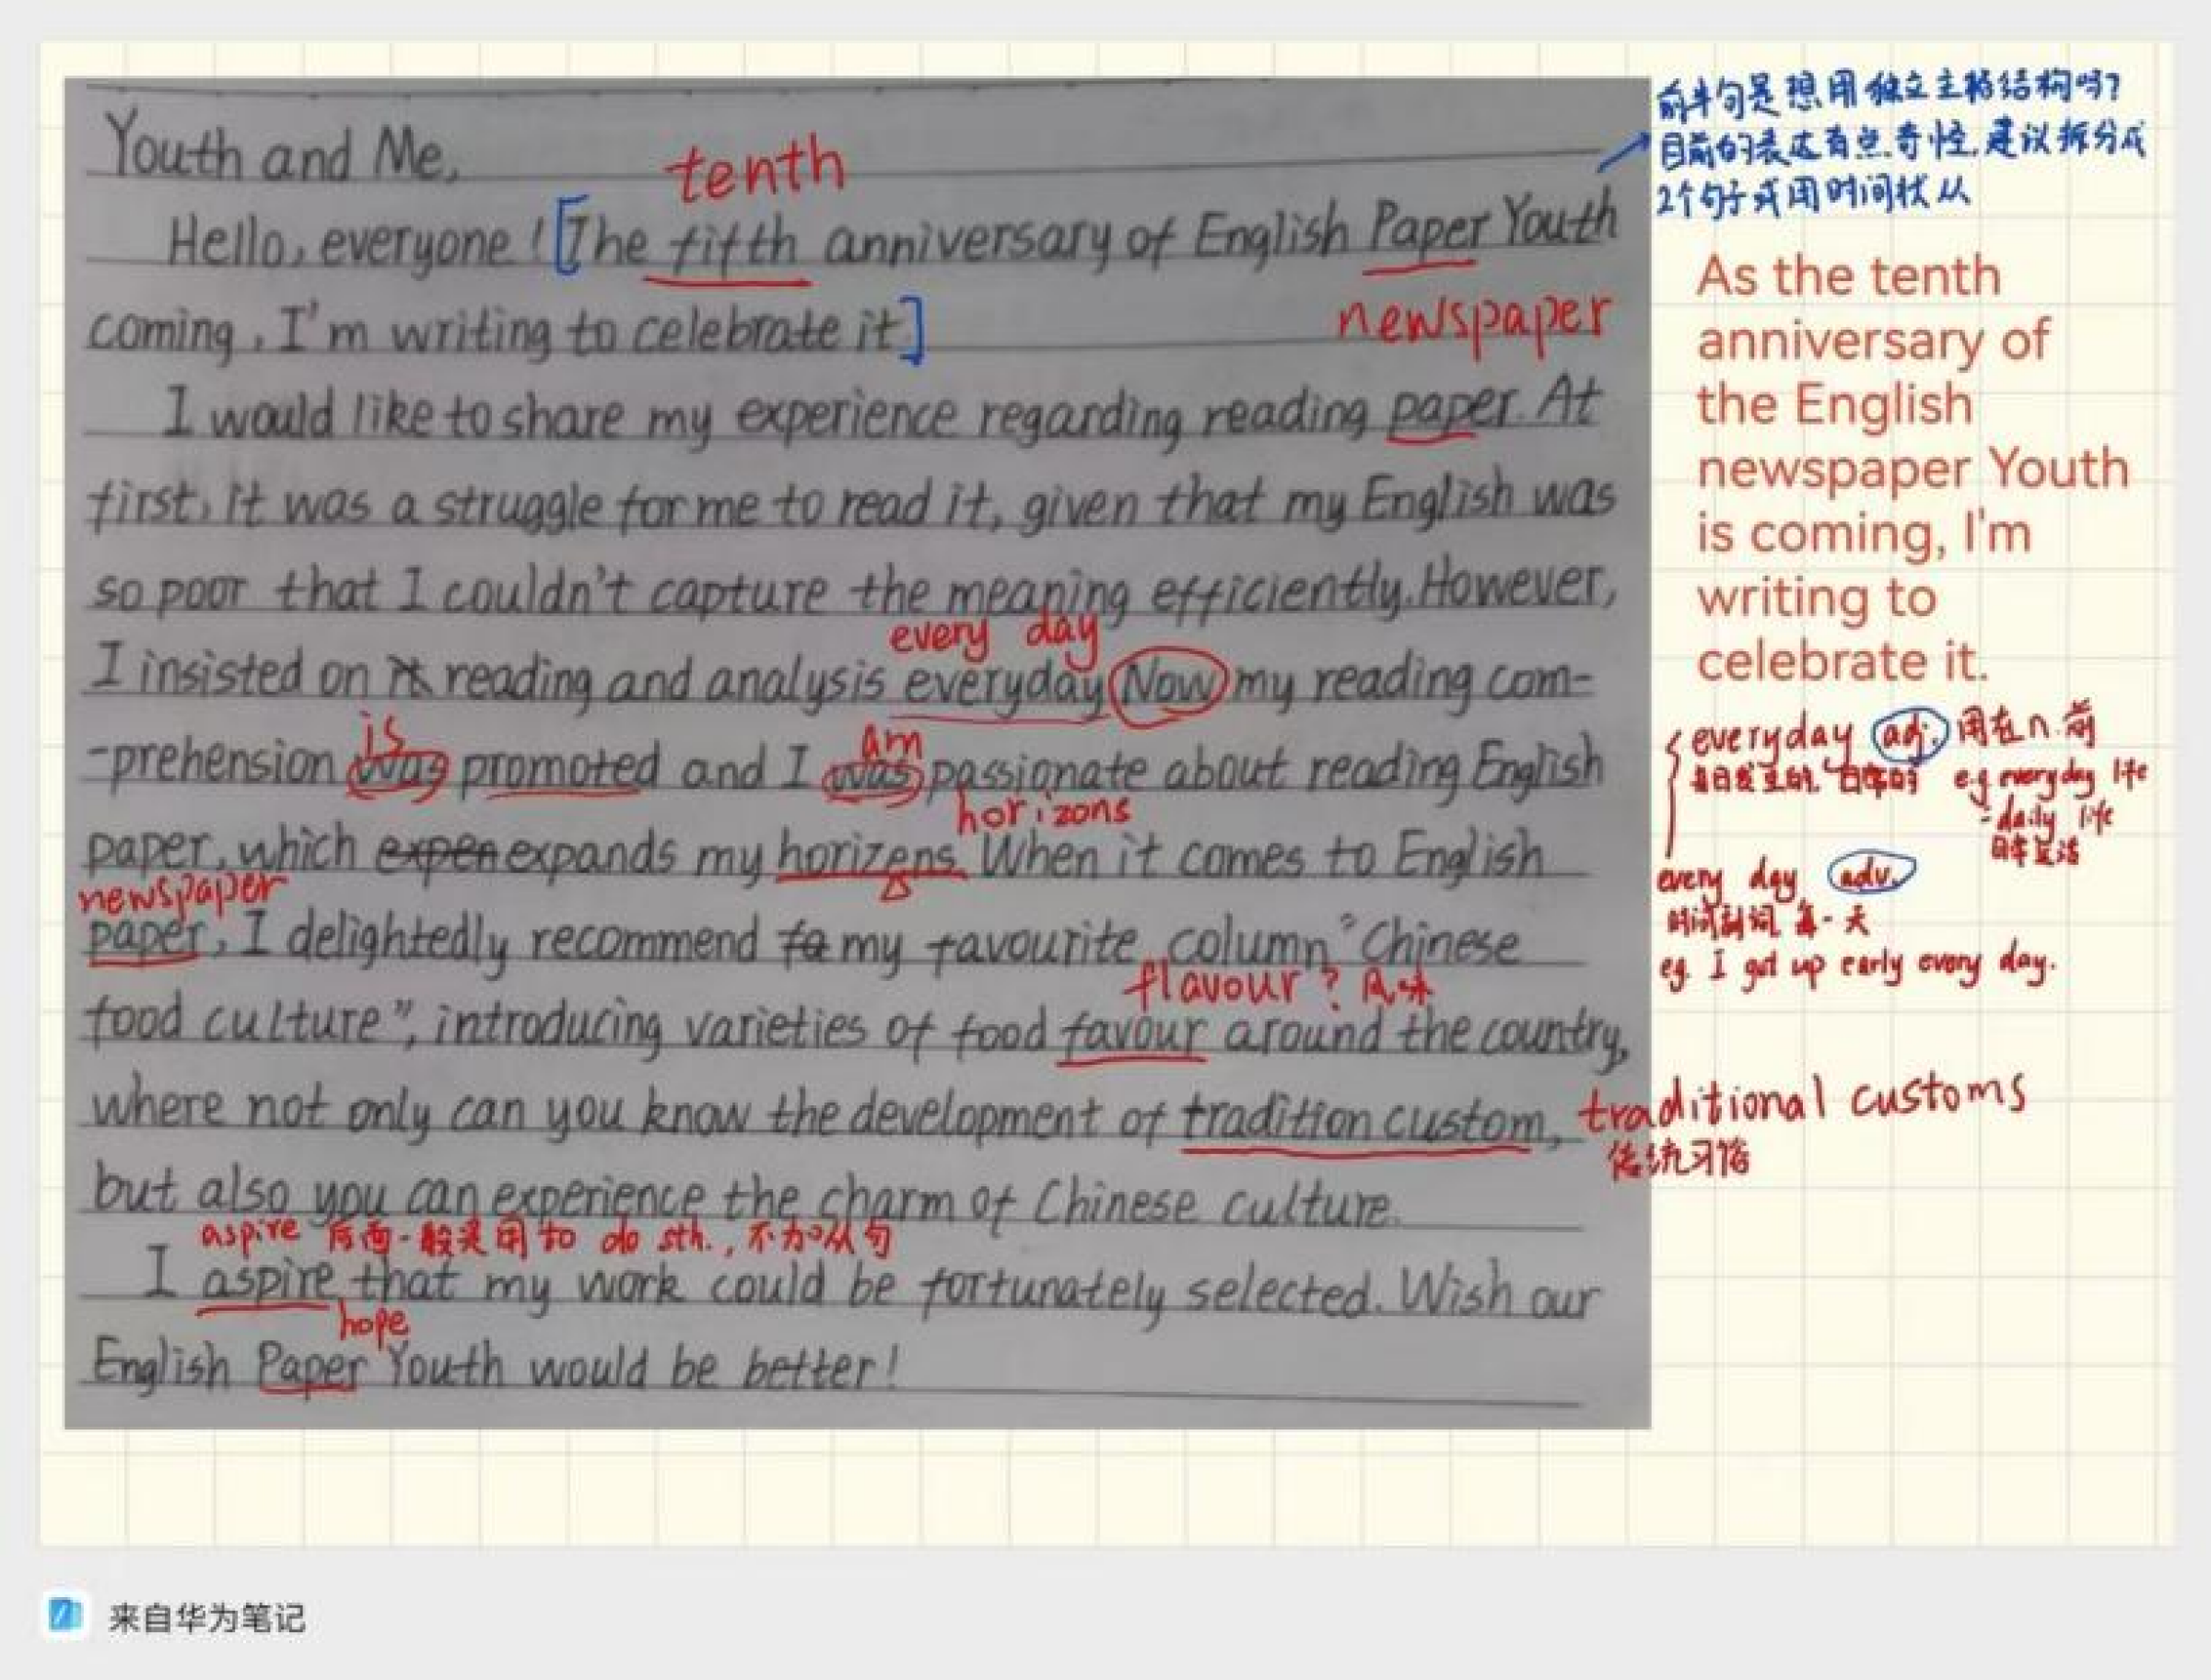 Youth and Me,
tenth
Hello, everyone! [The fifth anniversary of English Paper Youth
newspaper
coming, I'm writing to celebrate it]
I would like to share my experience regarding reading paper. At
first, it was a struggle for me to read it, given that my English was
so poor that I couldn't capture the meaning efficiently. However,
every day
I insisted on reading and analysis everyday Now my reading com-
is am
-prehension was promoted and I was passionate about reading English
horizons
paper, which expen expands my horizens. When it comes to English
newspaper
paper, I delightedly recommend fa my favourite column "Chinese
flavour? 风味
food culture", introducing varieties of food favour around the country,
where not only can you know the development of tradition custom,
but also you can experience the charm of Chinese culture.
aspire 后面一般是用 to do sth., 不加从句
I aspire that my work could be fortunately selected. Wish our
hope
English Paper Youth would be better!
前半句是想用独立主格结构吗?
目前的表达有点奇怪,建议拆分成
2个句子或用时间状从
As the tenth
anniversary of
the English
newspaper Youth
is coming, I'm
writing to
celebrate it.
everyday adj. 用在n.前
每日发生的, 日常的 e.g. everyday life
= daily life
日常生活
every day adv.
时间副词 每一天
eg. I got up early every day.
traditional customs
传统习俗
来自华为笔记